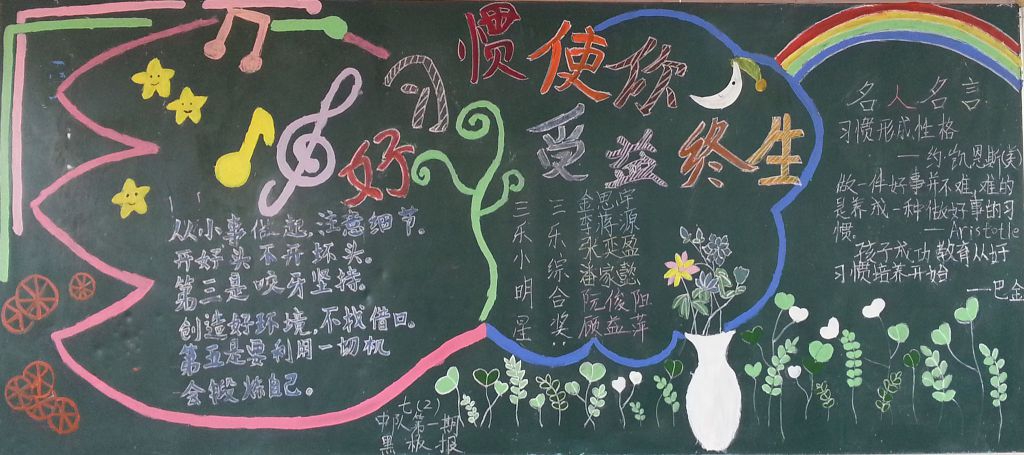 好习惯使你
受益终生
从小事做起,注意细节。
开好头不开坏头。
第三是咬牙坚持。
创造好环境,不找借口。
第五是要利用一切机
会锻炼自己。
三乐小明星
三乐综合奖:
蒋源
张奕盈
潘家懿
阮俊阳
顾益萍
名人名言
习惯形成性格
—约·凯恩斯(美)
做一件好事并不难,难的
是养成一种做好事的习
惯。 —Aristotle
孩子成功教育从好
习惯培养开始
—巴金
七(2)
中队第一期
黑板报